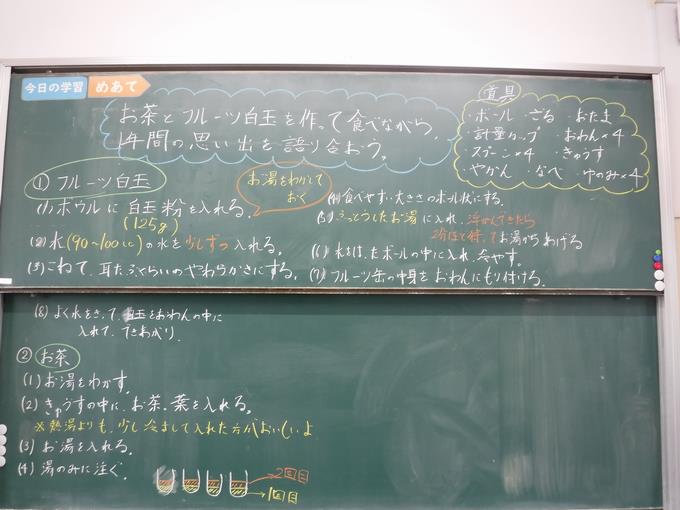 今日の学習 めあて
お茶とフルーツ白玉を作って食べながら、
1年間の思い出を語り合おう。
道具
・ボール ・ざる ・おたま
・計量カップ ・おわん×4
・スプーン×4 ・きゅうす
・やかん ・なべ ・ゆのみ×4
① フルーツ白玉
お湯をわかして
おく
(1) ボウルに白玉粉を入れる。
(125g)
(2) 水(90~100cc)の水を少しずつ入れる。
(3) こねて、耳たぶぐらいのやわらかさにする。
(4) 食べやすい大きさのボール状にする。
(5) ふっとうしたお湯に入れ、浮かんできたら
2分ほど待ってお湯からあげる
(6) 水をはったボールの中に入れ冷やす。
(7) フルーツ缶の中身をおわんにもり付ける。
(8) よく水をきって、白玉をおわんの中に
入れて、できあがり。
② お茶
(1) お湯をわかす。
(2) きゅうすの中に、お茶っ葉を入れる。
※熱湯よりも、少し冷まして入れた方がおいしいよ
(3) お湯を入れる。
(4) 湯のみに注ぐ。
2回目
1回目